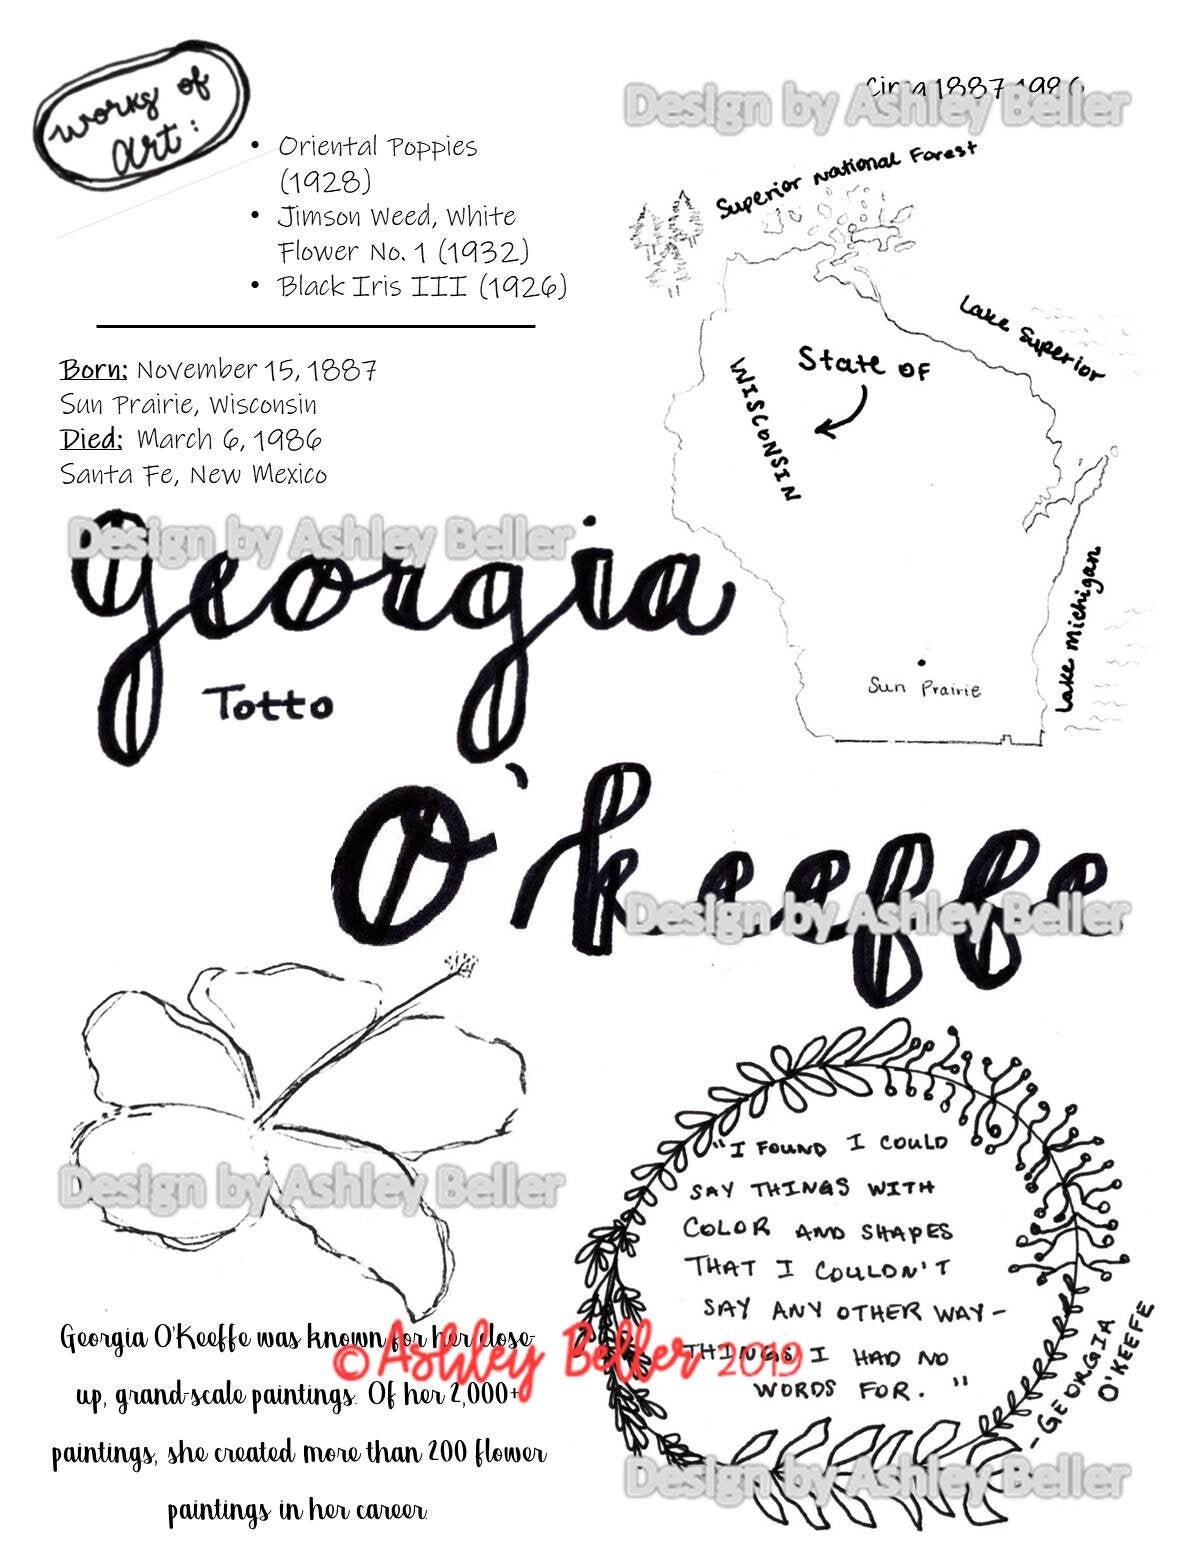 works of
art:
• Oriental Poppies
(1928)
• Jimson Weed, White
Flower No. 1 (1932)
• Black Iris III (1926)
Circa 1887-1986
Design by Ashley Beller
Superior National Forest
Lake Superior
State of
WISCONSIN
Lake Michigan
Sun Prairie
Born: November 15, 1887
Sun Prairie, Wisconsin
Died: March 6, 1986
Santa Fe, New Mexico
Design by Ashley Beller
Georgia
Totto
O'keeffe
Design by Ashley Beller
Design by Ashley Beller
"I FOUND I COULD
SAY THINGS WITH
COLOR AND SHAPES
THAT I COULDN'T
SAY ANY OTHER WAY-
THINGS I HAD NO
WORDS FOR."
-GEORGIA
O'KEEFFE
Georgia O'Keeffe was known for her close-
up, grand-scale paintings. Of her 2,000+
paintings, she created more than 200 flower
paintings in her career.
© Ashley Beller 2019
Design by Ashley Beller